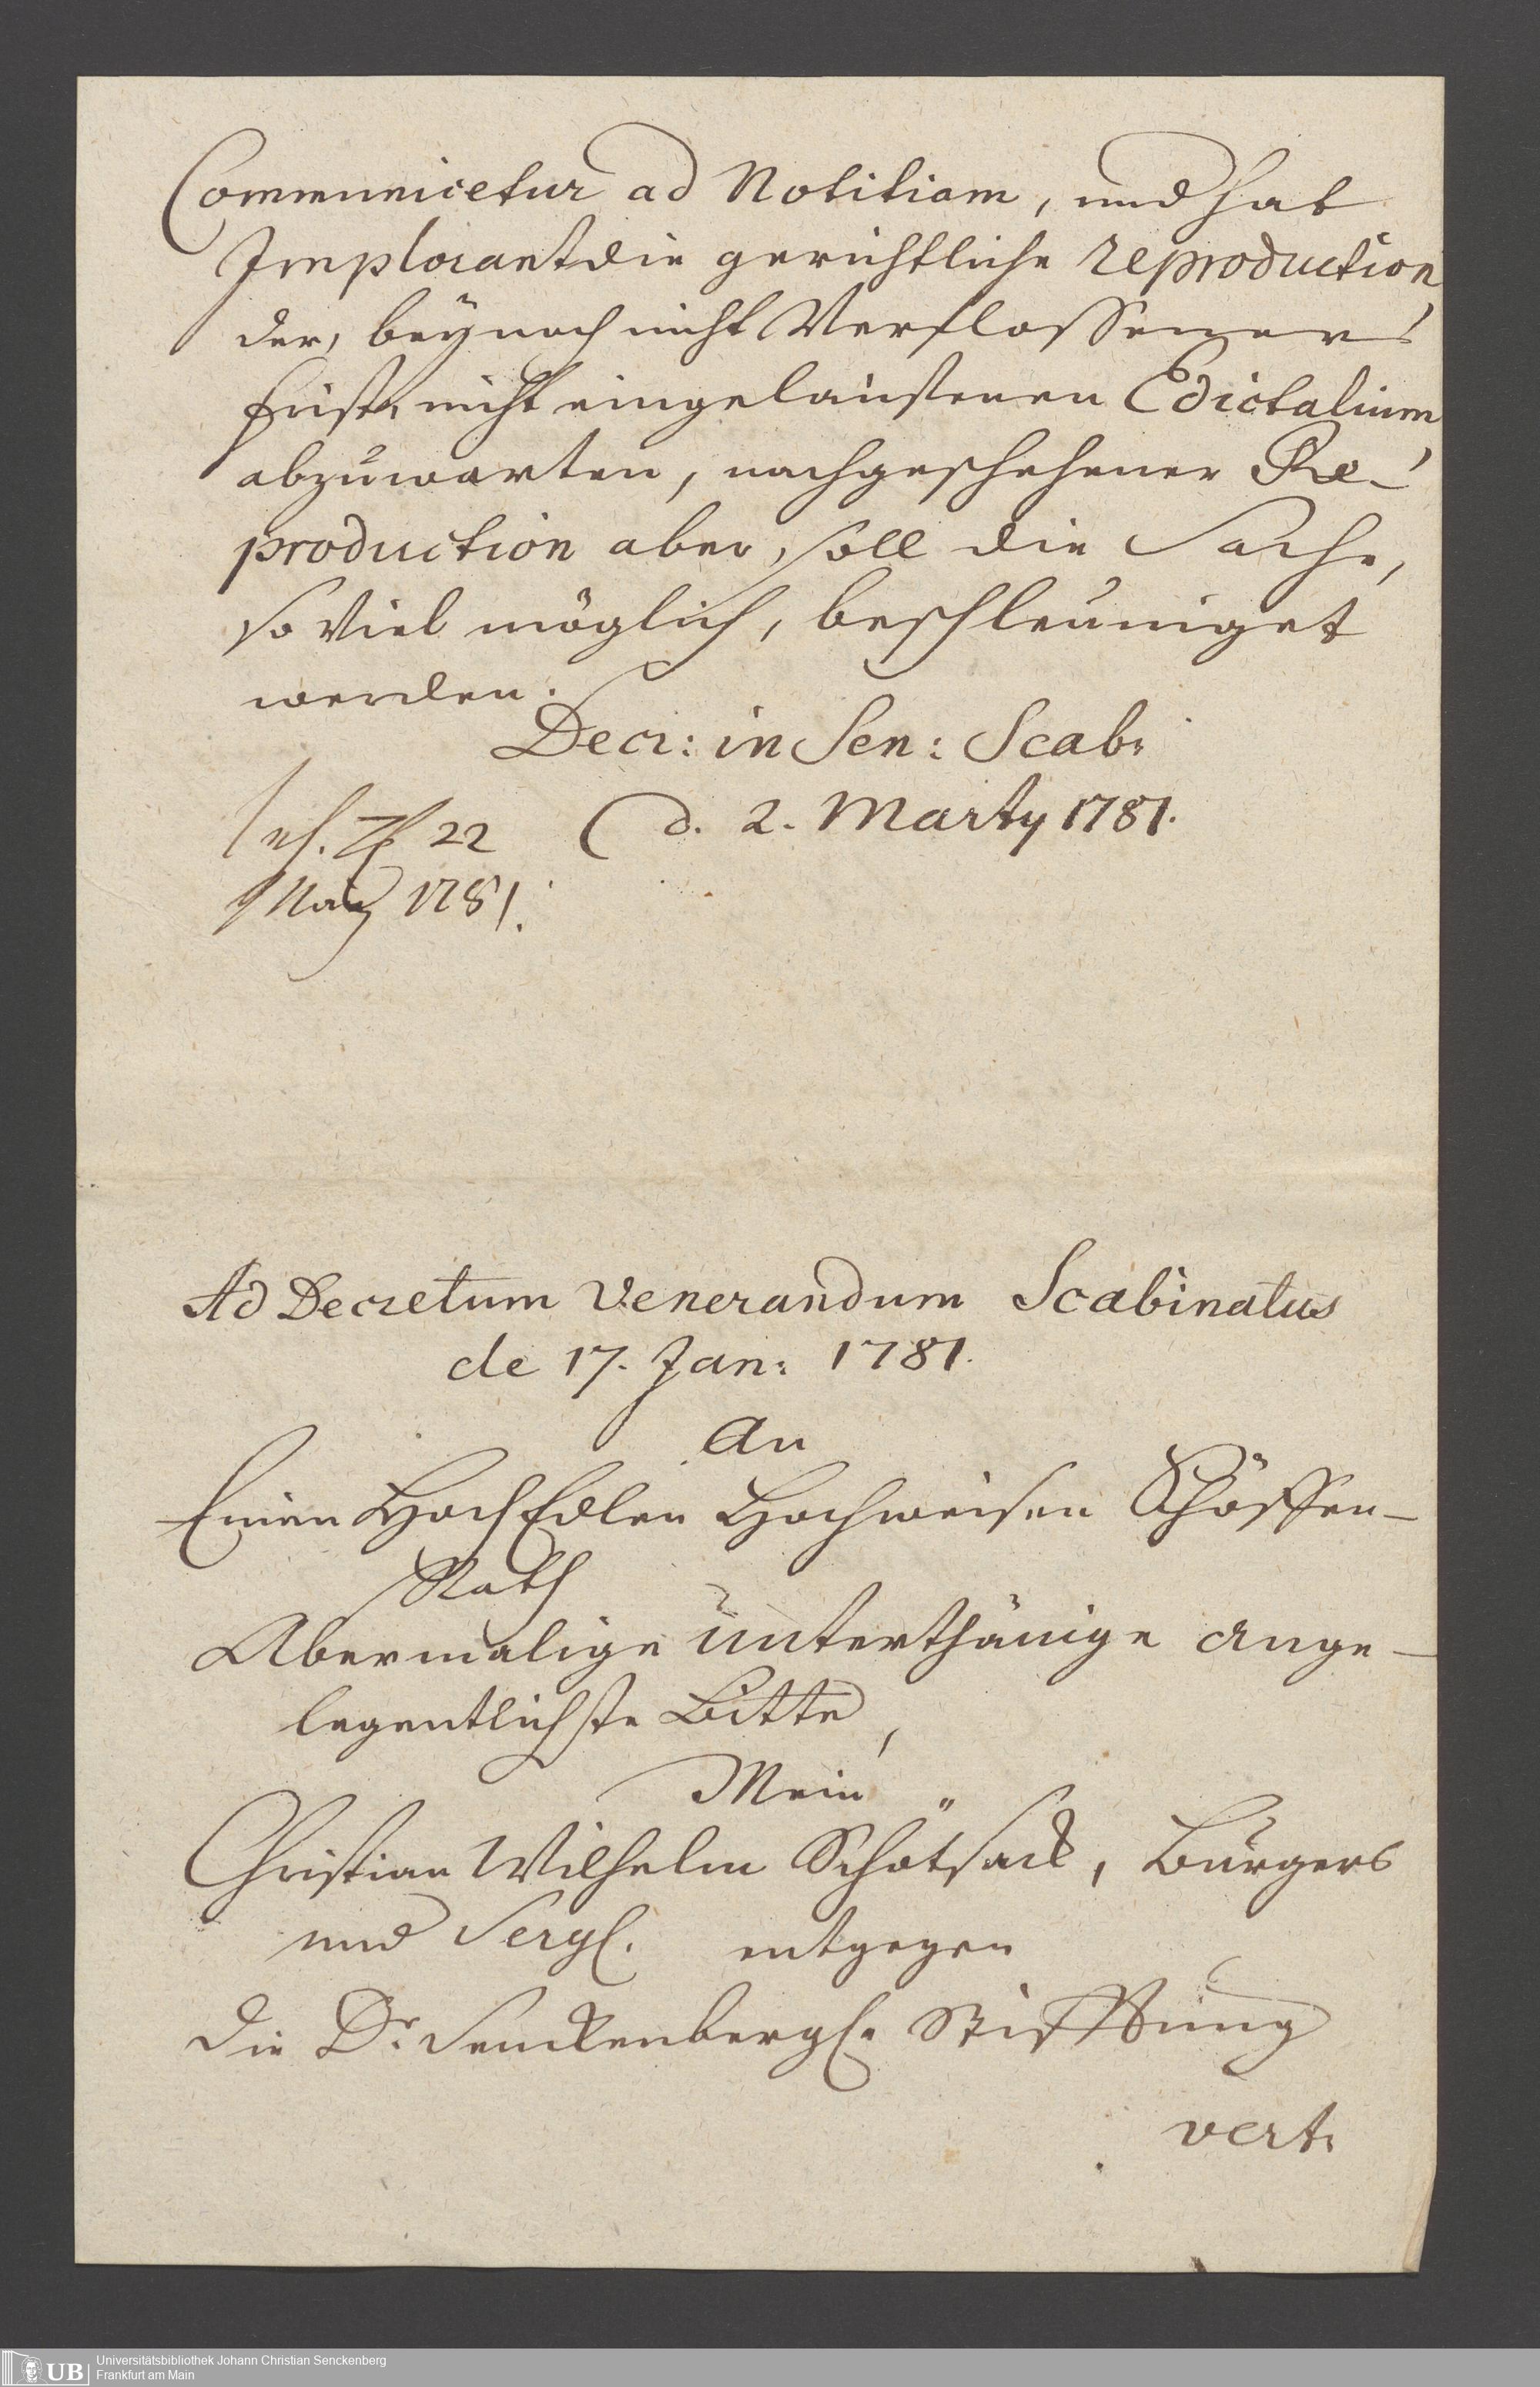 Communicetur ad Notitiam, und hat
Implorant die gerichtliche reproduction
der, bey noch nicht Verflossener
frist, nicht eingelauffenen Edictalium
abzuwarten, nach geschehener Re-
production aber, soll die Sache,
so Viel möglich, beschleuniget
werden.
Decr: in Sen: Scab:
d. 2. Marty 1781.
22
1781.
Ad Decretum Venerandum Scabinatus
de 17. Jan: 1781.
An
Einen HochEdlen Hochweisen Schöffen-
Rath
Abermalige unterthänige ange-
legentlichste Bitte,
Mein
Christian Wilhelm Schötsack, Burgers
und entgegen
die Dr. Senckenbergl. Stifftung
vert:
Universitätsbibliothek Johann Christian Senckenberg
Frankfurt am Main
UB